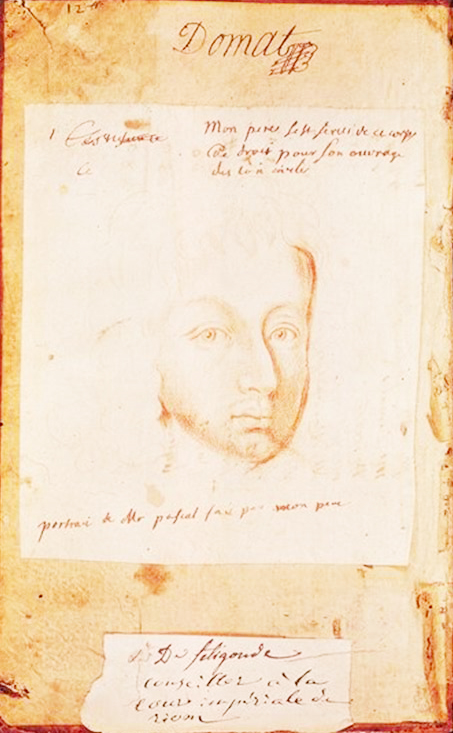 12
Domat
1
Mon pere s'est servi de ce corps
De droit pour son ouvrage
des loix civiles
ce
portrai de Mr pascal fait par mon pere
De féligonde
conseiller à la
cour impériale de
riom